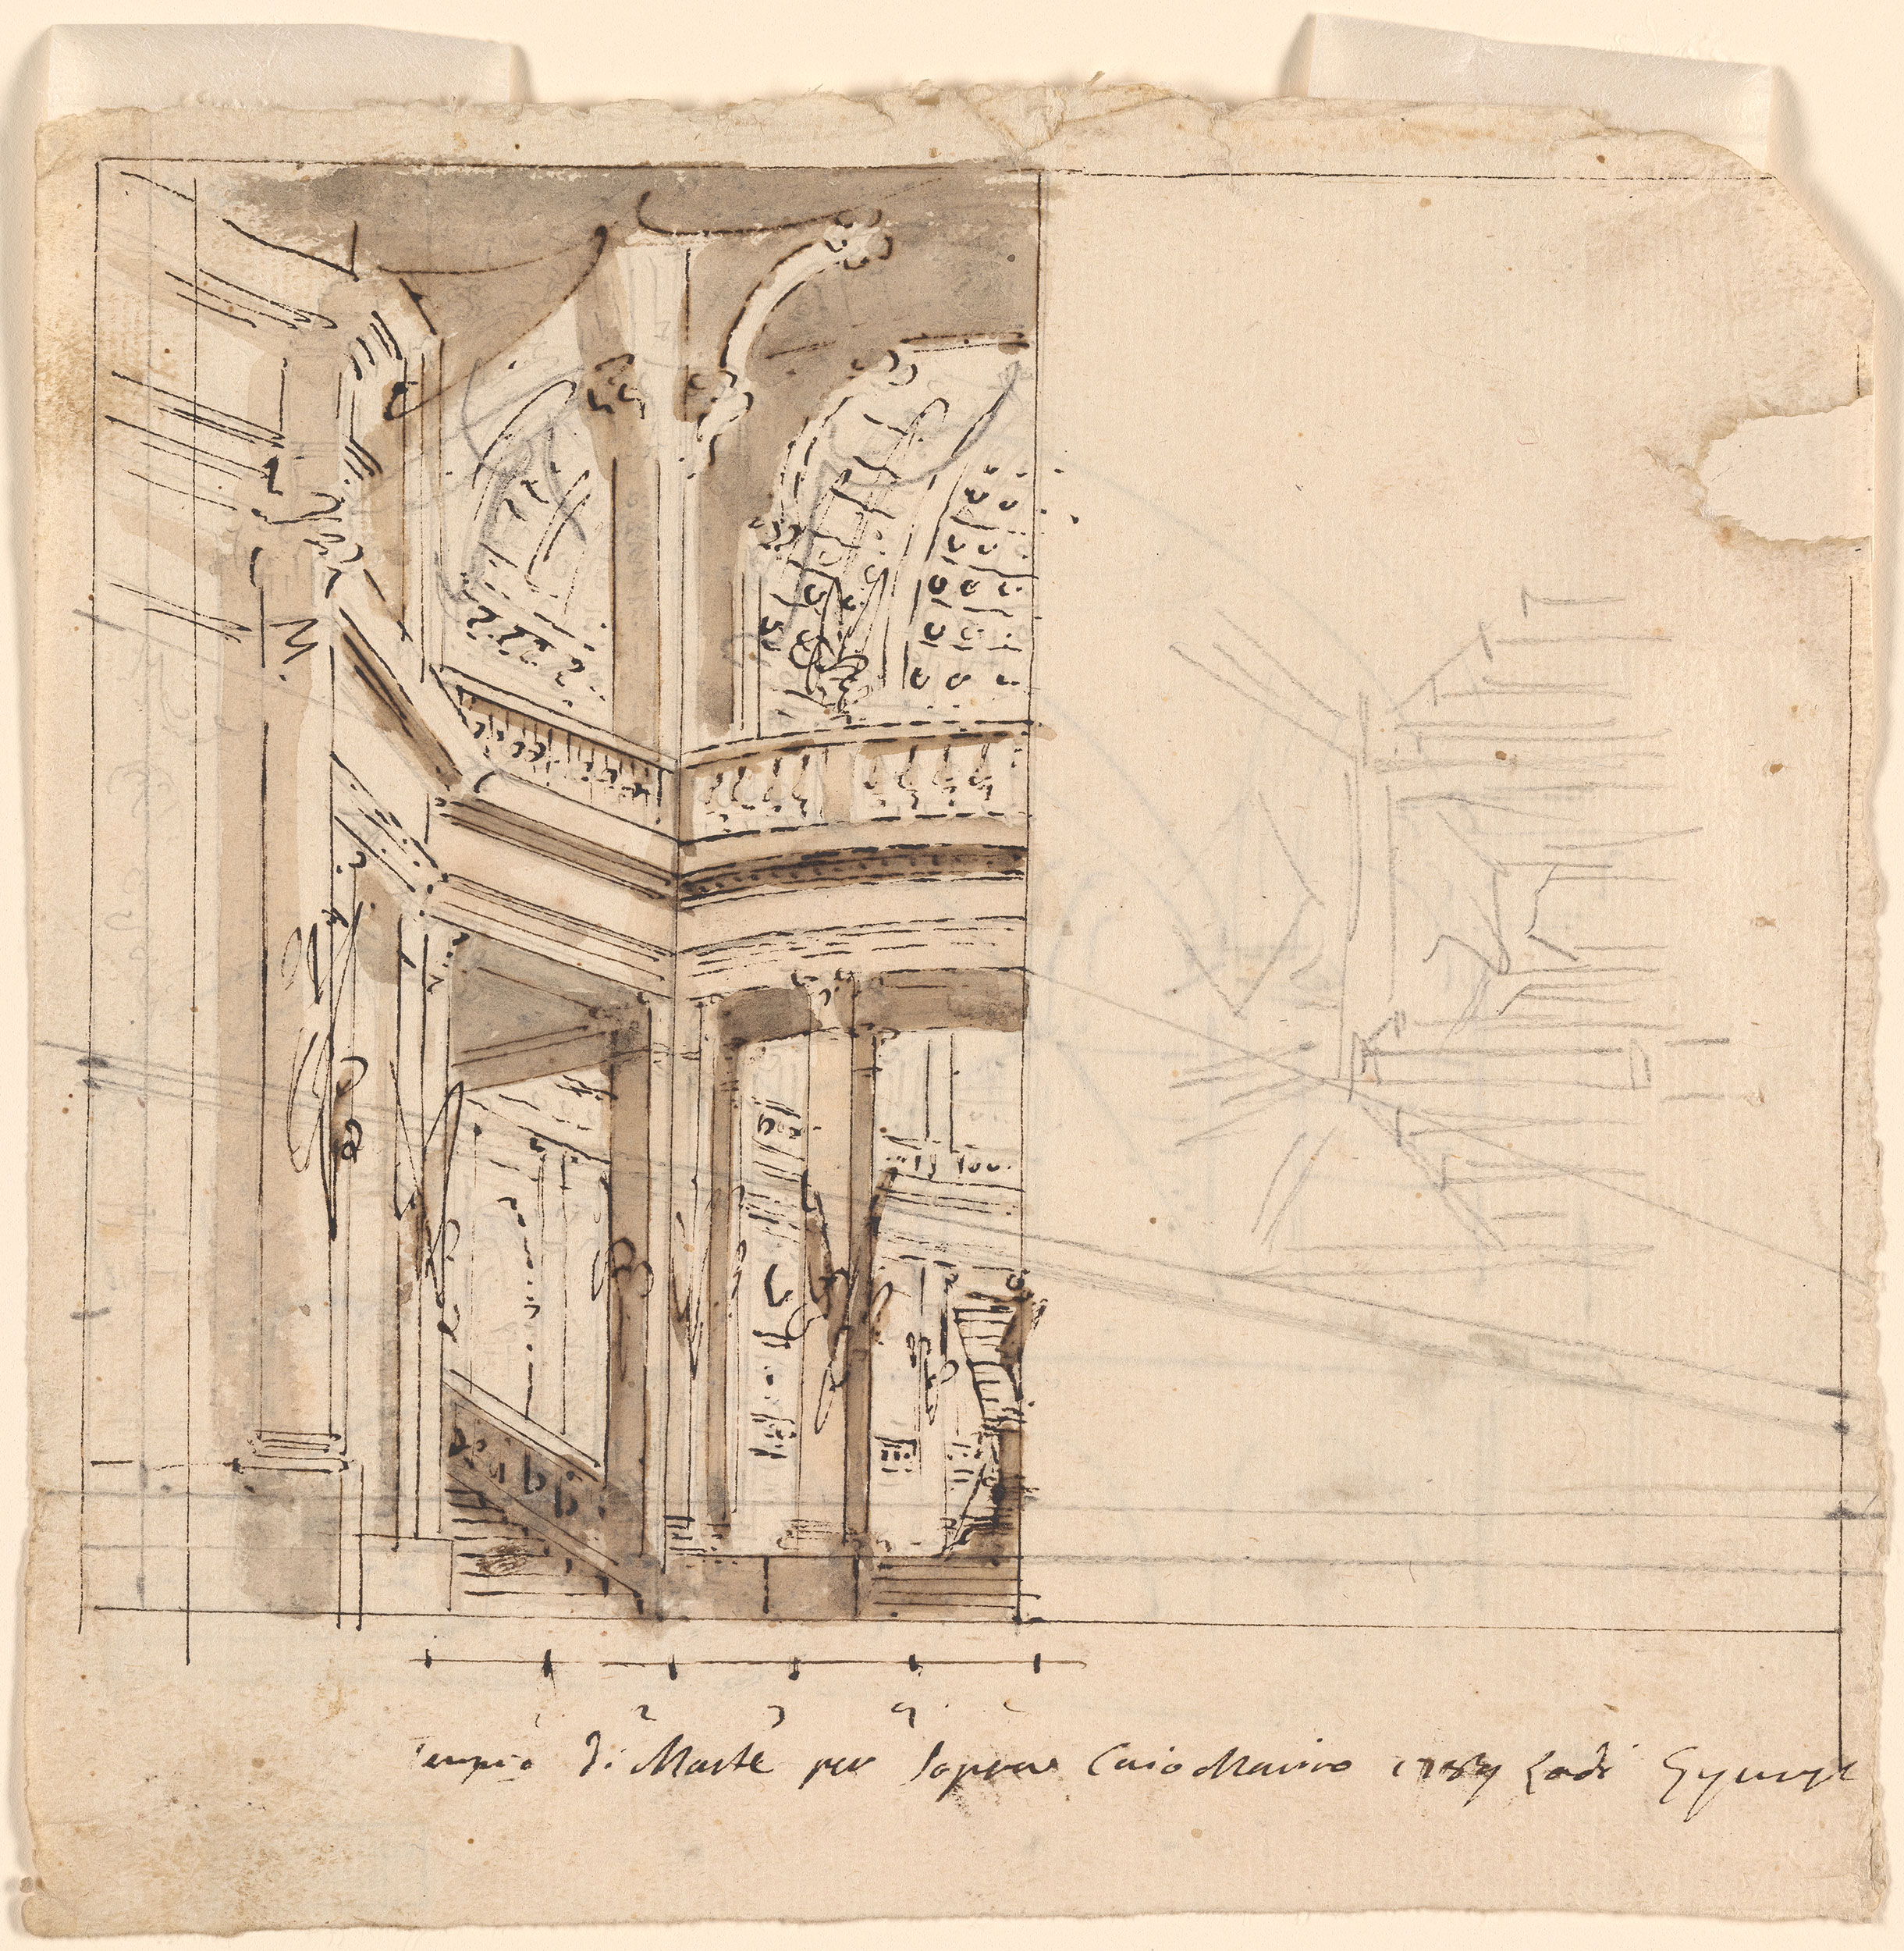 2 3 4
Tempio di Marte per l'opera Caio Mario 1789 Lodi